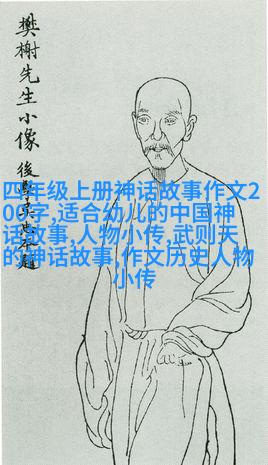 樊榭先生小像
後學
四年级上册神话故事作文2
00字,适合幼儿的中国神
话故事,人物小传,武则天
的神话故事,作文历史人物
小传